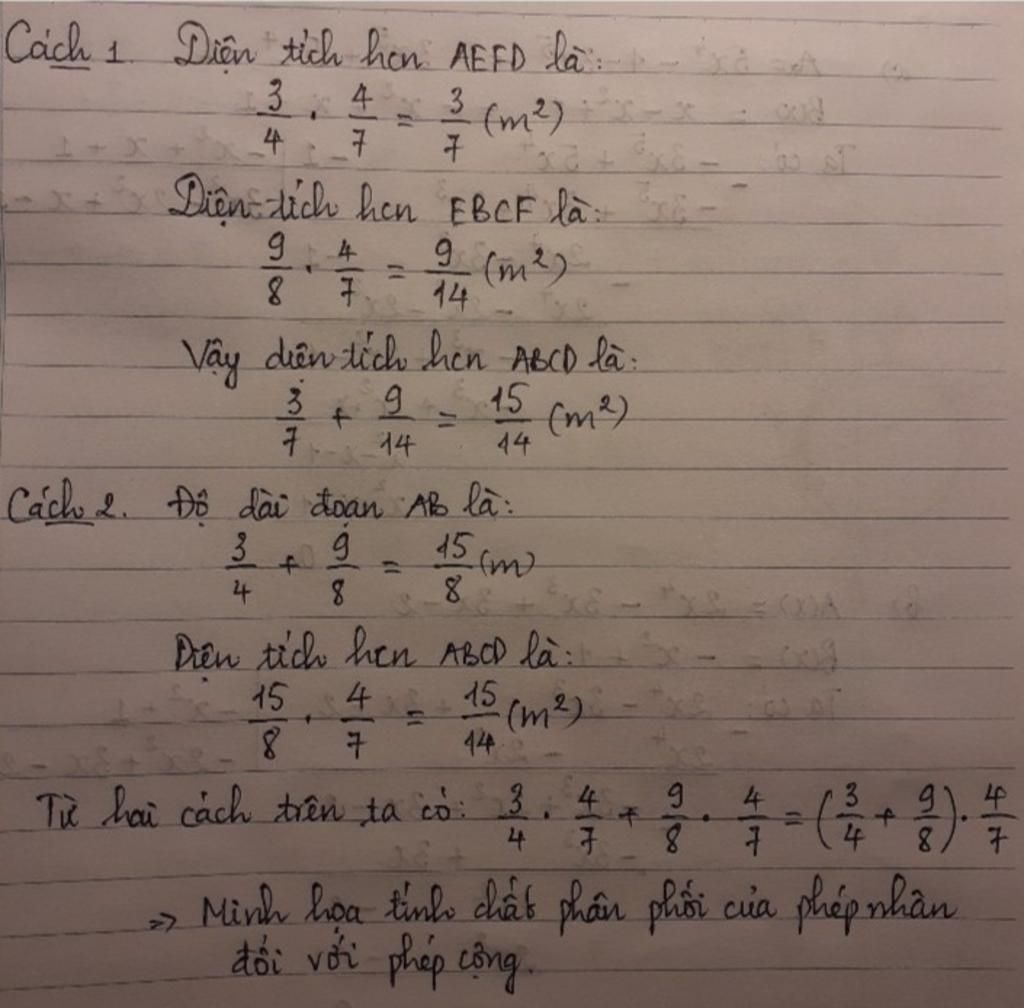 Cách 1. Diện tích hcn AEFD là:
3/4 . 4/7 = 3/7 (m²)
Diện tích hcn EBCF là:
9/8 . 4/7 = 9/14 (m²)
Vậy diện tích hcn ABCD là:
3/7 + 9/14 = 15/14 (m²)
Cách 2. Độ dài đoạn AB là:
3/4 + 9/8 = 15/8 (m)
Diện tích hcn ABCD là:
15/8 . 4/7 = 15/14 (m²)
Từ hai cách trên ta có: 3/4 . 4/7 + 9/8 . 4/7 = (3/4 + 9/8) . 4/7
=> Minh họa tính chất phân phối của phép nhân
đối với phép cộng.